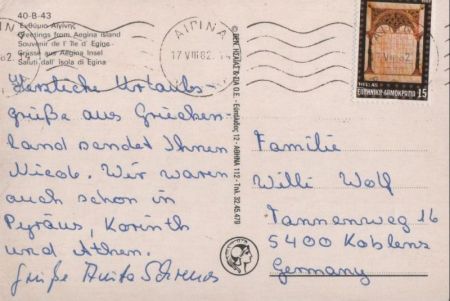 40-8-43
Ενθύμιο Αιγίνης
Greetings from Aegina island
Souvenir de l' île d' Egine
Grüsse aus Aegina Insel
Saluti dall' Isola di Egina
ΑΙΓΙΝΑ
17 VIII 82
HELLAS
ΕΛΛΗΝΙΚΗ ΔΗΜΟΚΡΑΤΙΑ 15
Herzliche Urlaubs-
grüße aus Griechen-
land sendet Ihnen
Nicole. Wir waren
auch schon in
Pyräus, Korinth
und Athen.
Grüße Anita
Familie
Willi Wolf
Tannenweg 16
5400 Koblenz
Germany
ΑΘΗΝΑ 112 - Τηλ. 32.45.479